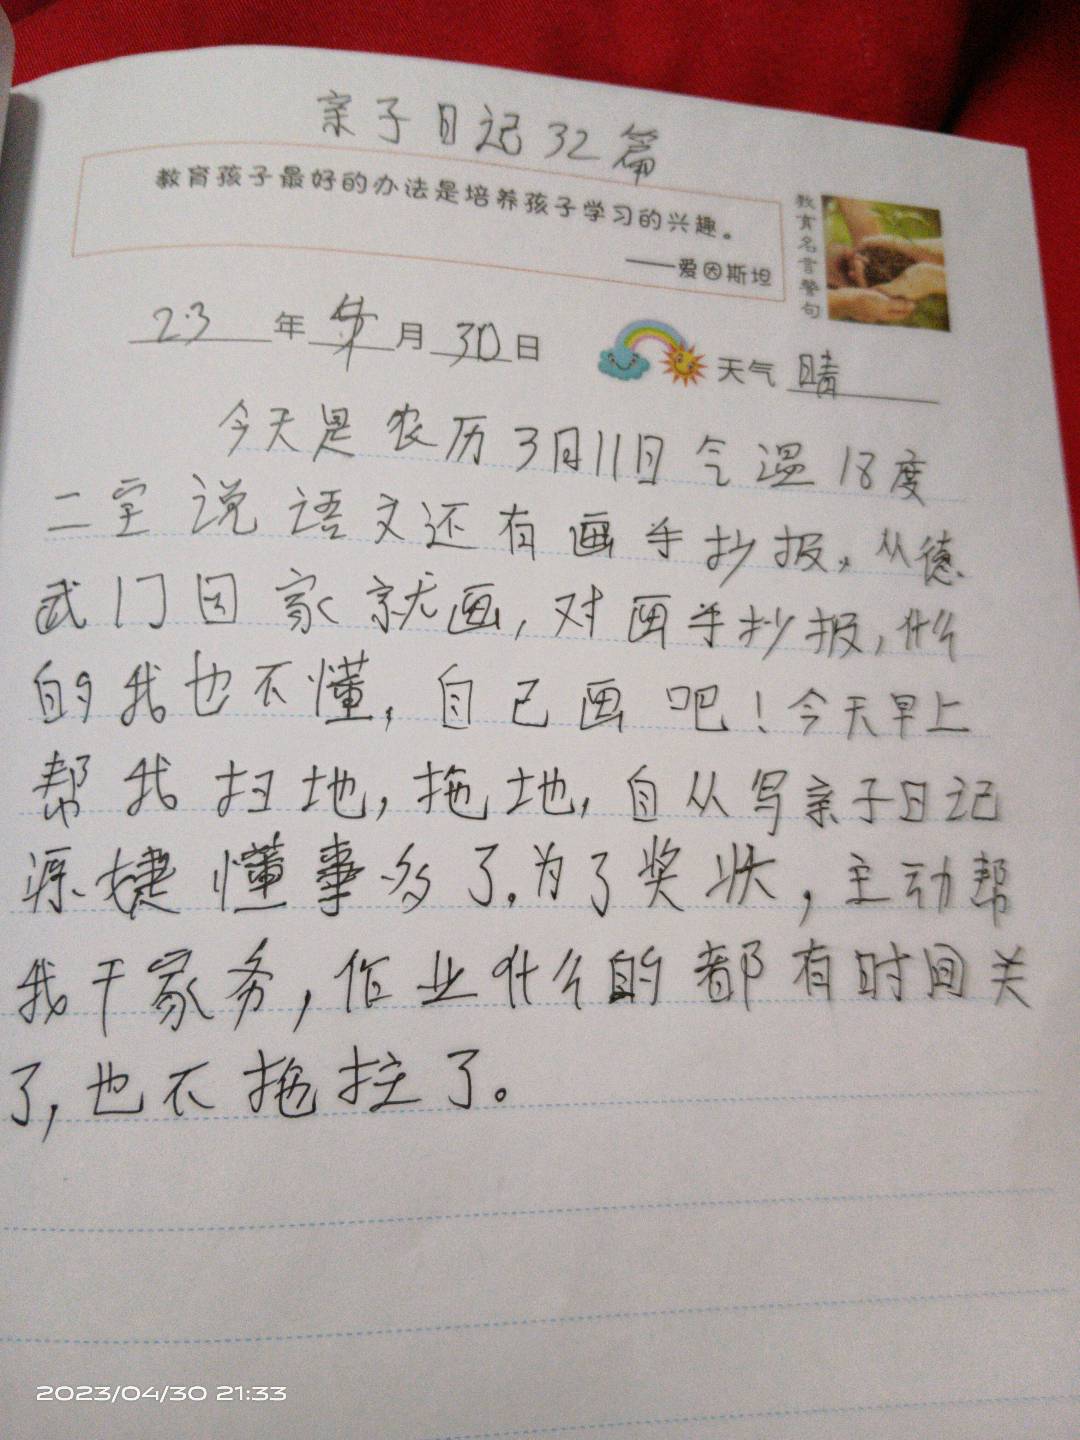 亲子日记32篇
教育孩子最好的办法是培养孩子学习的兴趣。
——爱因斯坦
教育名言警句
23年 月30日 天气 晴
今天是农历3月11日气温18度
二宝说语文还有画手抄报,从德
武门回家就画,对画手抄报,什么
的我也不懂,自己画吧!今天早上
帮我扫地,拖地,自从写亲子日记
源捷懂事多了.为了奖状,主动帮
我干家务,作业什么的都有时间关
了,也不拖拉了。
2023/04/30 21:33